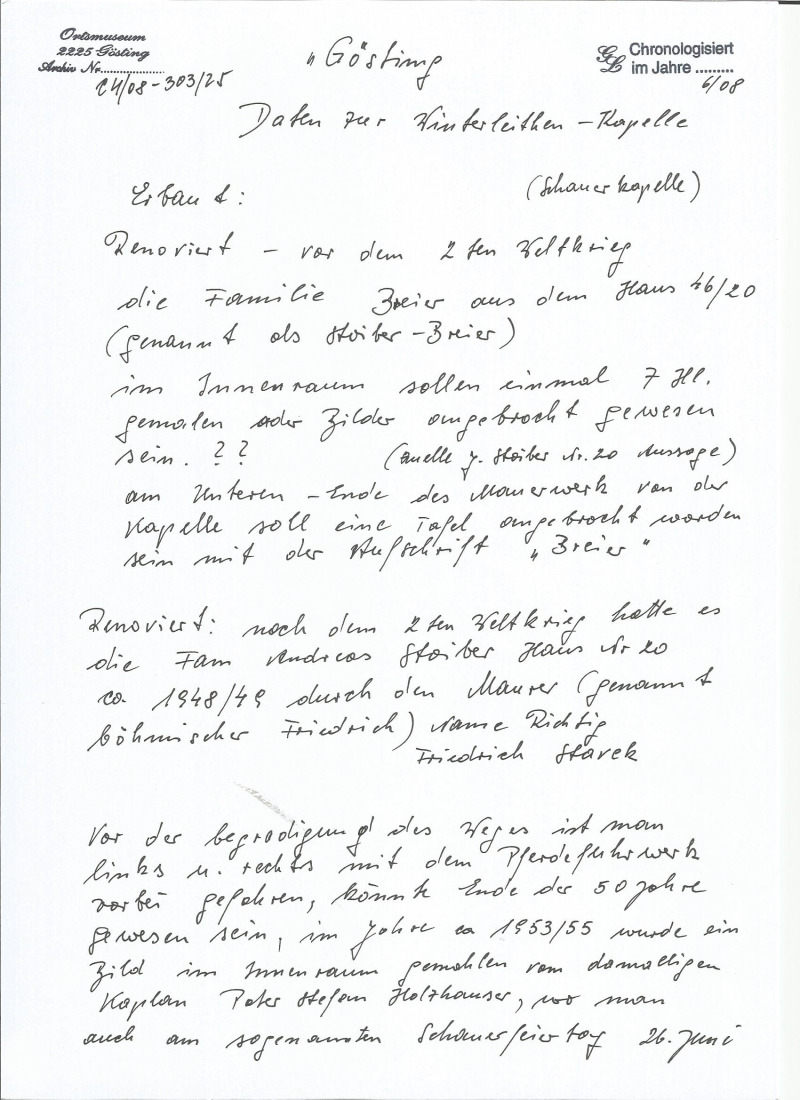 Ortsmuseum
2225 Gösting
Archiv Nr.............
C4/08-303/25
"Gösting
GL Chronologisiert
im Jahre .........
6/08
Daten zur Winterleithen-Kapelle
Erbaut:
(Schauerkapelle)
Renoviert - vor dem 2ten Weltkrieg
die Familie Breier aus dem Haus 46/20
(genannt als Stoiber-Breier)
im Innenraum sollen einmal 7 Hl.
gemalen oder Bilder angebracht gewesen
sein. ??
(quelle J. Stoiber Nr. 20 Aussage)
am Unteren - Ende des Mauerwerk von der
Kapelle soll eine Tafel angebracht worden
sein mit der Aufschrift "Breier"
Renoviert: nach dem 2ten Weltkrieg hatte es
die Fam Andreas Stoiber Haus Nr 20
ca. 1948/49 durch den Maurer (genannt
böhmischer Friedrich) Name Richtig
Friedrich Stavek
Vor der begradigung des Weges ist man
links u. rechts mit dem Pferdefuhrwerk
vorbei gefahren, könnte Ende der 50 Jahre
gewesen sein, im Jahre ca 1953/55 wurde ein
Bild im Innenraum gemahlen vom damaligen
Kaplan Pater Stefan Holzhauser, wo man
auch am sogenannten Schauerfeiertag 26. Juni